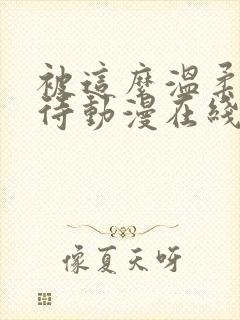 被這麼溫柔
待動漫在綫
像夏天呀